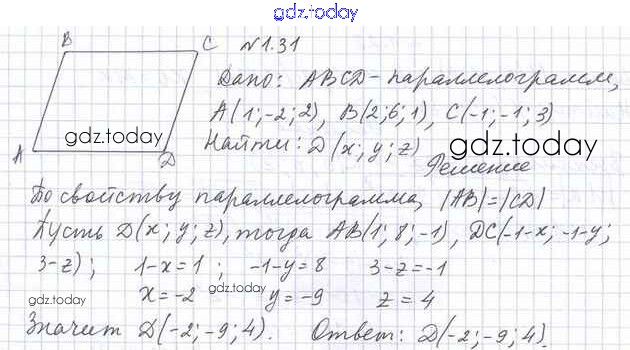 gdz.today
B C №1.31
Дано: ABCD - параллелограмм,
A(1;-2;2), B(2;6;1), C(-1;-1;3)
gdz.today
Найти: D(x; y; z)
gdz.today
A D
Решение
По свойству параллелограмма, |AB|=|CD|
Пусть D(x; y; z), тогда AB(1; 8; -1), DC(-1-x; -1-y;
3-z); 1-x=1 ; -1-y=8 3-z=-1
gdz.today
x=-2 gdz.today y=-9 z=4
Значит D(-2;-9;4). Ответ: D(-2;-9;4).
gdz.today